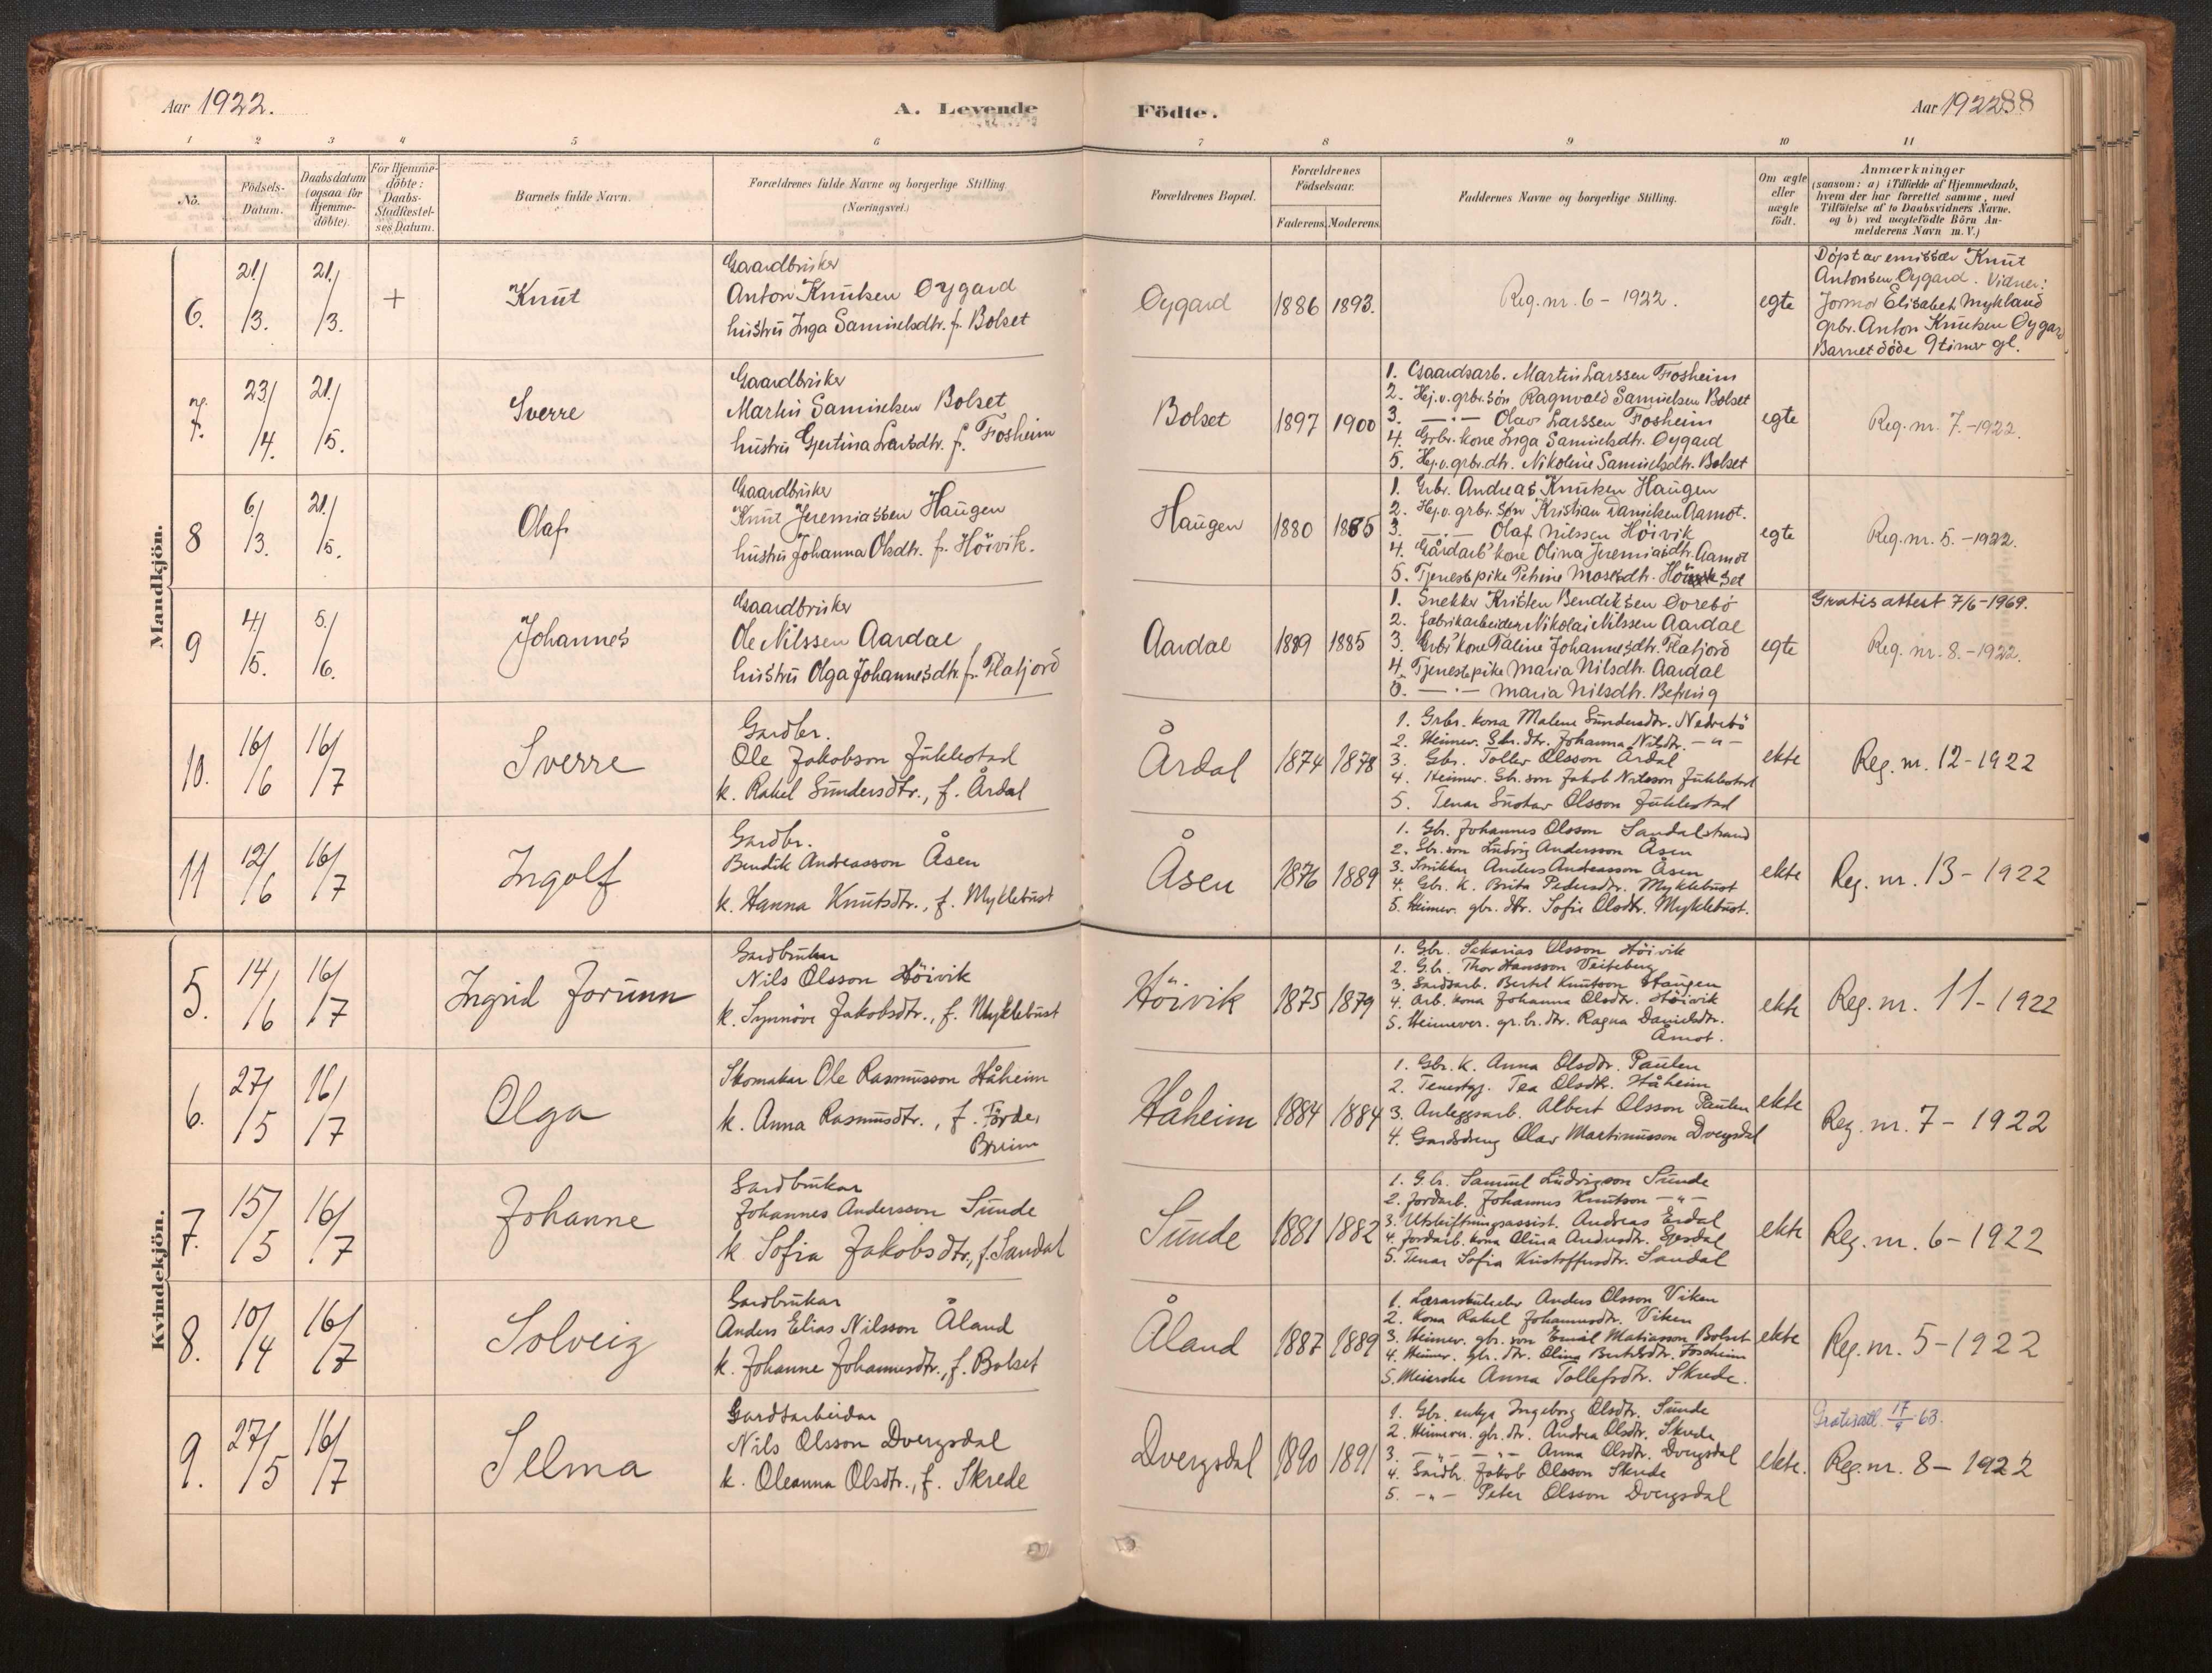 Aar 1922.
A. Levende
Födte.
Aar 1922
88
1 2 3 4 5 6 7 8 9 10 11
No.
Födsels-
Datum.
Daabsdatum
(ogsaa for
Hjemme-
döbte).
For Hjemme-
döbte:
Daabs-
Stadfæstel-
ses Datum.
Barnets fulde Navn.
Forældrenes fulde Navne og borgerlige Stilling.
(Næringsvei.)
Forældrenes Bopæl.
Forældrenes
Födselsaar.
Faderens. Moderens.
Faddernes Navne og borgerlige Stilling.
Om ægte
eller
uægte
födt.
Anmærkninger
(saasom: a) i Tilfælde af Hjemmedaab,
hvem der har forrettet samme, med
Tilföielse af to Daabsvidners Navne,
og b) ved uægtefödte Börn An-
melderens Navn m. V.)
Mandkjön.
6.
21/3.
21/3.
+
Knut
Gaardbruker
Anton Knutsen Oygard
hustru Inga Samuelsdtr. f. Bolset
Oygard
1886 1893.
Reg. nr. 6 - 1922.
egte
Döpt av emissær Knut
Antonsen Oygard. Vidner:
Jormor Elisabet Mykland
grbr. Anton Knutsen Oygard
Barnet döde 9 timer gl.
7.
23/4.
21/5.
Sverre
Gaardbruker
Martin Samuelsen Bolset
hustru Gjertina Larsdtr. f. Fosheim
Bolset
1897 1900
1. Gaardsarb. Martin Larssen Fosheim
2. Hj.v. grbr. sön Ragnvald Samuelsen Bolset
3. —·— Olav Larssen Fosheim
4. Grbr. kone Inga Samuelsdtr. Oygard
5. Hj.v. grbr. dtr. Nikoline Samuelsdtr. Bolset
egte
Reg. nr. 7. - 1922.
8
6/3.
21/5.
Olaf
Gaardbruker
Knut Jeremiassen Haugen
hustru Johanna Olsdtr. f. Höivik.
Haugen
1880 1885
1. Grbr. Andreas Knutsen Haugen
2. Hj.v. grbr. sön Kristian Danielsen Aamot.
3. —·— Olaf Nilssen Höivik
4. Gårdarb' kone Olina Jeremiasdtr. Aamot
5. Tjenestepike Petrine Mosesdtr.
egte
Reg. nr. 5. - 1922.
9
4/5.
5/6.
Johannes
Gaardbruker
Ole Nilssen Aardal
hustru Olga Johannesdtr. f. Flatjord
Aardal
1889 1885
1. Snekker Kristen Bendiksen Ovrebö
2. fabrikarbeider Nikolai Nilssen Aardal
3. Grbr' kone Taline Johannesdtr. Flatjord
4. Tjenestepike Maria Nilsdtr. Aardal
5. —·— Maria Nilsdtr. Befring
egte
Gratis attest 7/6 - 1969.
Reg. nr. 8. - 1922.
10.
16/6
16/7
Sverre
Gardbr.
Ole Jakobson Juklestad
k. Rakel Gundersdtr., f. Årdal
Årdal
1874 1878
1. Grbr. kona Malene Gundersdtr. Nedrebö
2. Heimev. Gbr. dtr. Johanna Nilsdtr. —"—
3. Gbr. Tollev Olsson Årdal
4. Heimev. Gbr. son Jakob Nilsson Juklestad
5. Tenar Gustav Olsson Juklestad
ekte
Reg. nr. 12 - 1922
11
12/6
16/7
Ingolf
Gardbr.
Bendik Andreasson Åsen
k. Hanna Knutsdtr., f. Myklebust
Åsen
1876 1889
1. Gbr. Johannes Olsson Sandalstrand
2. Gbr. son Ludvig Andersson Åsen
3. Snikkar Anders Andreasson Åsen
4. Gbr. k. Brita Pedersdtr. Myklebust
5. Heimev. gbr. dtr. Sofie Olsdtr. Myklebust.
ekte
Reg. nr. 13 - 1922
Kvindekjön.
5.
14/6
16/7
Ingrid Jorunn
Gardbrukar
Nils Olsson Höivik
k. Synnöve Jakobsdtr., f. Myklebust
Höivik
1875 1879
1. Gbr. Sakarias Olsson Höivik
2. G.br. Thor Hansson Veiteberg
3. Gardsarb. Bertel Knutson Haugen
4. Arb. kona Johanna Olsdtr. Höivik
5. Heimever. gr.br. dtr. Ragna Danielsdtr.
Åmot.
ekte
Reg. nr. 11 - 1922
6.
27/5
16/7
Olga
Skomakar Ole Rasmusson Håheim
k. Anna Rasmusdtr., f. Förde,
Breim
Håheim
1884 1884
1. Gbr. k. Anna Olsdtr. Paulen
2. Tenestgj. Tea Olsdtr. Håheim
3. Anleggsarb. Albert Olsson Paulen
4. Gardsdreng Olav Martinusson Dvergsdal
ekte
Reg. nr. 7 - 1922
7.
15/5
16/7
Johanne
Gardbrukar
Johannes Andersson Sunde
k. Sofia Jakobsdtr., f. Sandal
Sunde
1881 1882
1. G.br. Samuel Ludvigson Sunde
2. Jordarb. Johannes Knutson —"—
3. Utskiftningsassist. Andreas Eidal
4. Jordarb. kona Olina Andersdtr.
5. Tenar Sofia Kristoffersdtr. Sandal
ekte
Reg. nr. 6 - 1922
8.
10/4
16/7
Solveig
Gardbrukar
Anders Elias Nilsson Åland
k. Johanne Johannesdtr., f. Bolset
Åland
1887 1889
1. Anders Olsson Viken
2. Kona Rakel Johannesdtr. Viken
3. Heimev. gbr. son Emil Matiasson Bolset
4. Heimev. gbr. dtr. Olina Bertelsdtr. Fosheim
5. Meierske Anna Tollefsdtr. Skrede.
ekte
Reg. nr. 5 - 1922
9.
27/5
16/7
Selma
Gardsarbeidar
Nils Olsson Dvergsdal
k. Oleanna Olsdtr., f. Skrede
Dvergsdal
1890 1891
1. Gbr. enkja Ingeborg Olsdtr. Sunde
2. Heimever. gbr. dtr. Andrea Olsdtr. Skrede
3. —"— —"— Anna Olsdtr. Dvergsdal
4. Gardbr. Jakob Olsson Skrede
5. —"— Peter Olsson Dvergsdal
ekte.
Gratisatt. 17/9-63.
Reg. nr. 8 - 1922